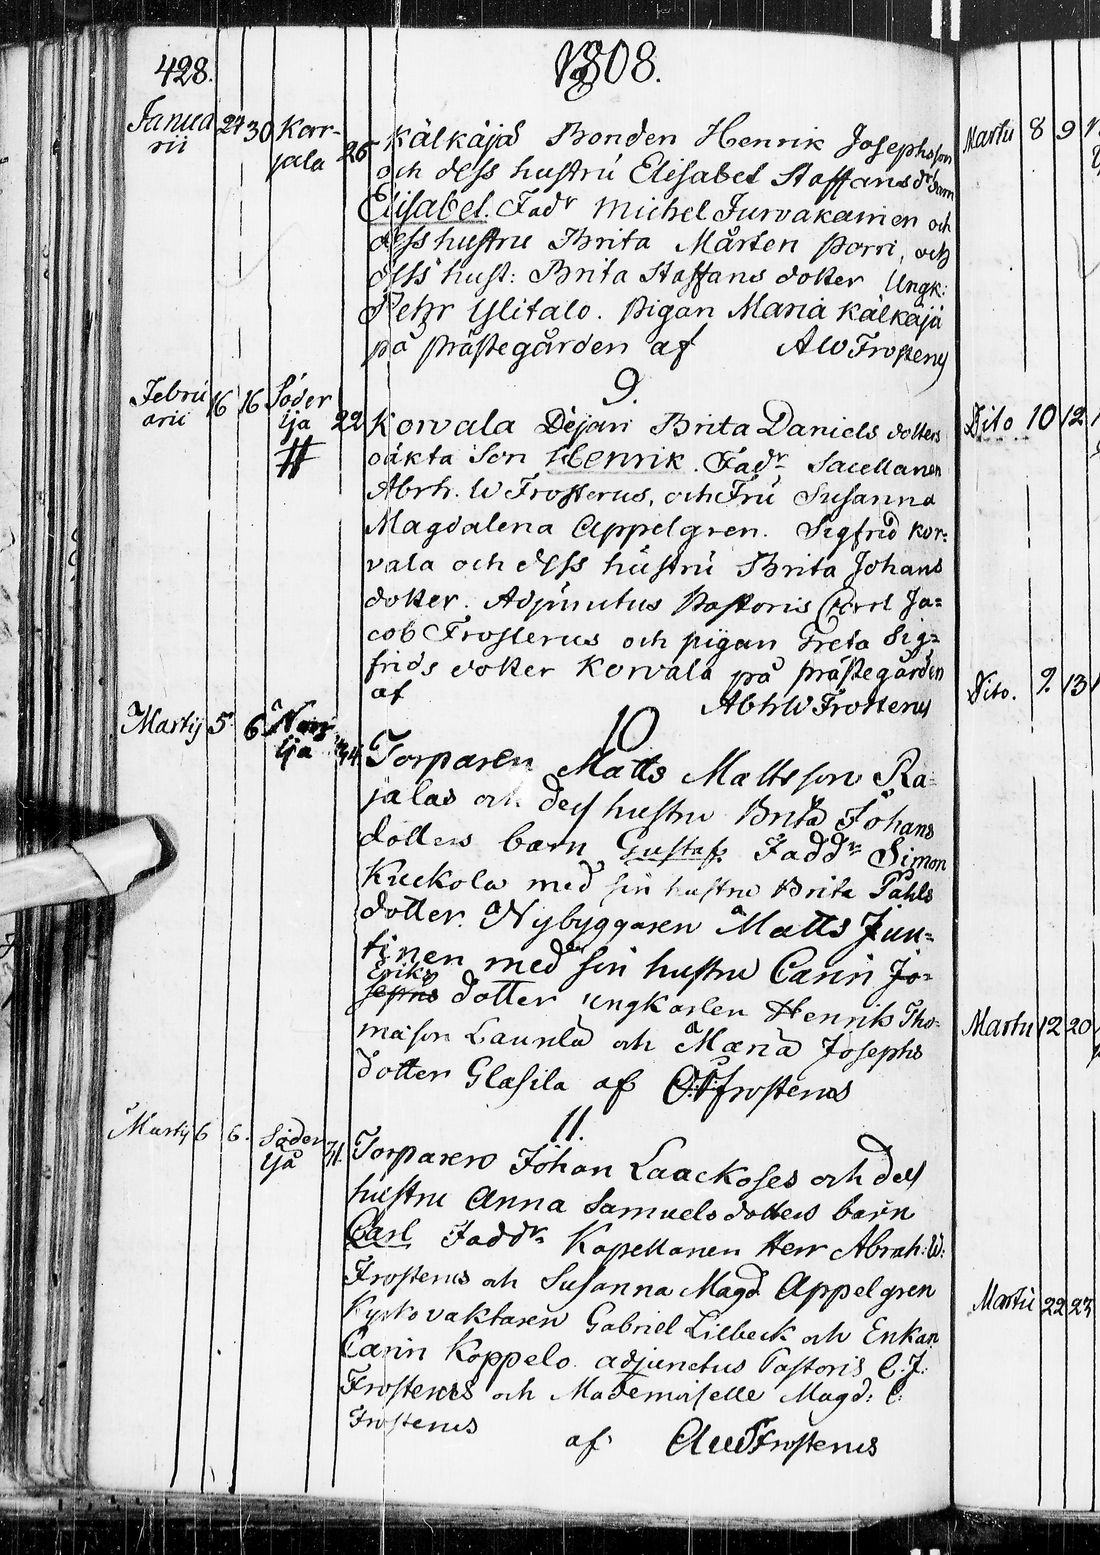 428.
1808.
Janua
rii
27 30
Korr-
jala
26
Kälkäjä Bonden Henrik Josephsson
och dess hustru Elisabet Staffansdr barn
Elisabel. Fadr Michel Jurvakainen och
dess hustru Brita Mårten Porri, och
dess hust: Brita Staffans dotter Ungk:
Pehr Ylitalo. Pigan Maria Kälkäjä
på Prästegården af AWFrosterus
9.
Febru
arii
16 16
Söder
ija
#
22
Korvala Dejan Brita Daniels dotters
oäkta Son Henrik. Fadr Sacellanen
Abrh. W Frosterus, och Fru Susanna
Magdalena Appelgren. Sigfrid Kor=
vala och dess hustru Brita Johans
dotter. Adjunctus Pastoris Carl Ja=
cob Frosterus och pigan Greta Sig=
frids dotter Korvala på Prästegården
af AbrhWFrosterus
10
Martij 5 6
Norr
ija
34
Torparen Matts Mattsson Ra=
jalas och dess hustru Brita Johans
dotters barn Gustaf. Faddr Simon
Kuckola med sin hustru Brita Påhls
dotter. Nybyggaren Matts Jun=
tinen med sin hustru Carin Jo=
Eriks
sephs dotter ungkarlen Henrik Tho=
mason Launla och Maria Josephs
dotter Glasila af Frosterus
11.
Martij 6 6.
Söder
ijä
31.
Torparens Johan Laackoses och dess
hustru Anna Samuelsdotters barn
Carl Faddr Kapellanen Herr Abrah: W:
Frosterus och Susanna Magd Appelgren
Kyrkovaktaren Gabriel Lilbeck och Enkan
Carin Koppelo. adjunctus Pastoris C. J:
Frosterus och Mademoiselle Magd: C:
Frosterus
af Frosterus
Martii 8 9
Dito 10 12
Dito. 9. 13
Martii 12 20
Martii 22 23